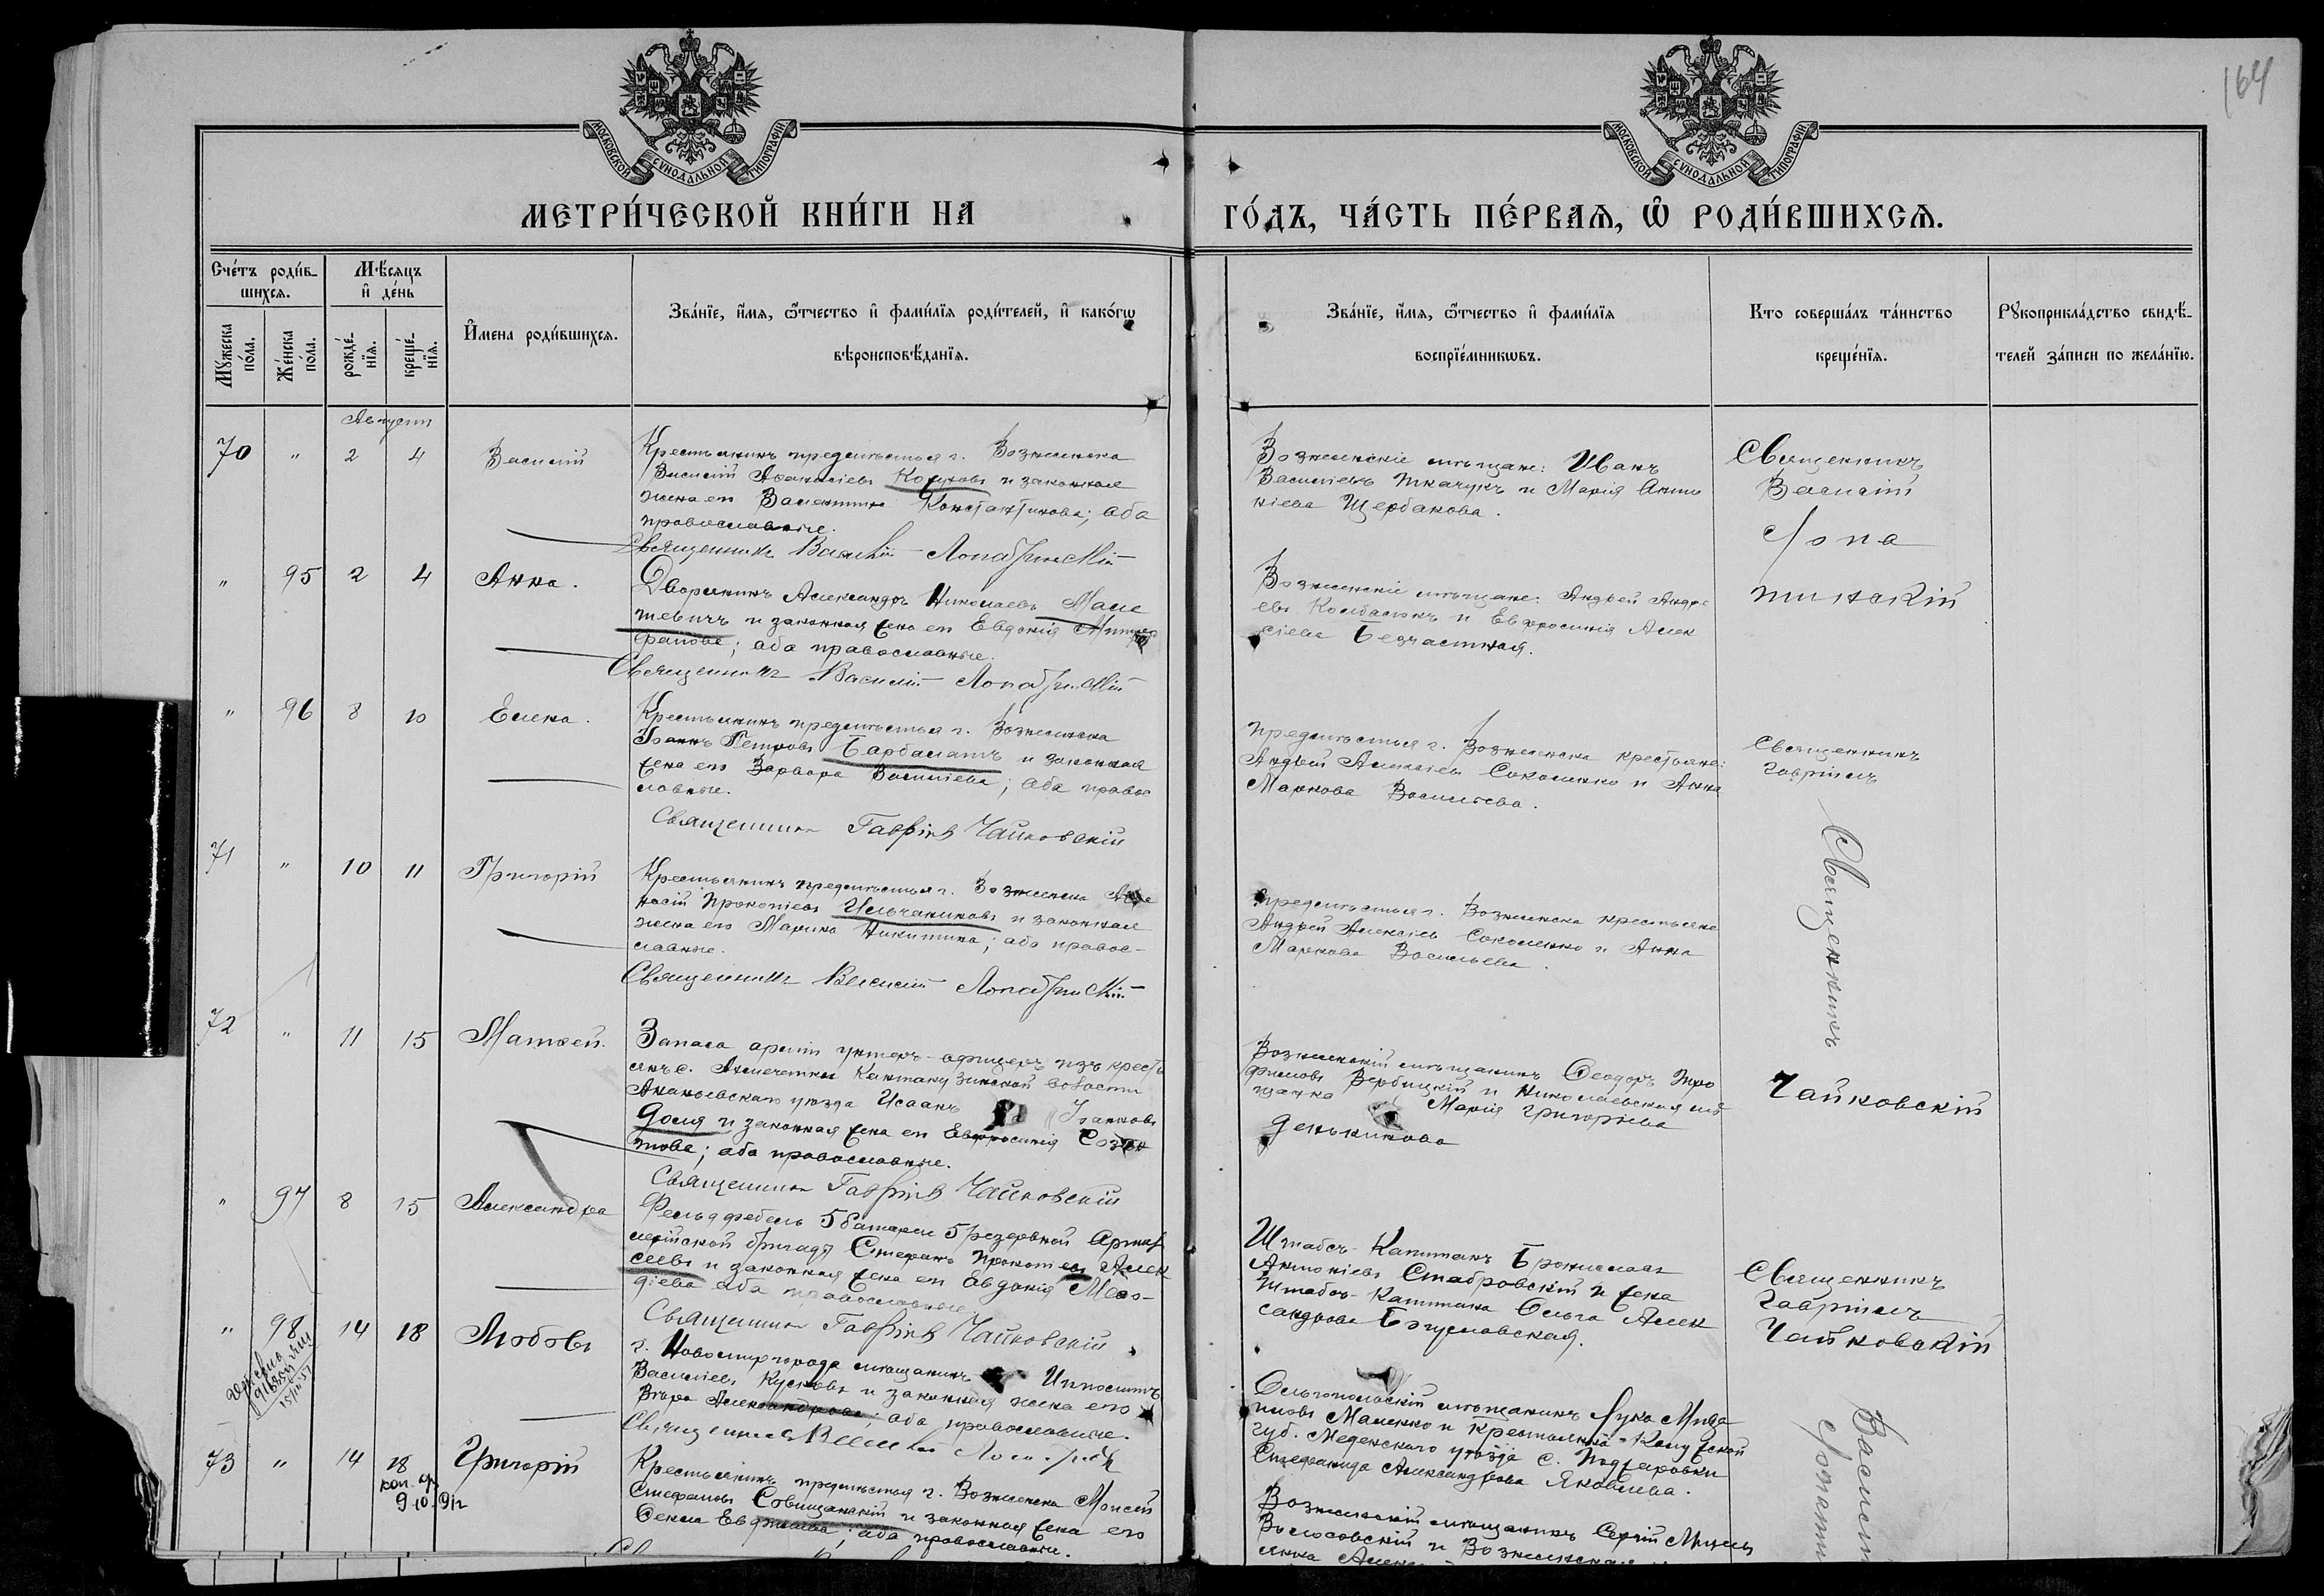 164
МОСКОВСКОЙ СѴНОДАЛЬНОЙ ТИПОГРАФІИ.
МОСКОВСКОЙ СѴНОДАЛЬНОЙ ТИПОГРАФІИ.
МЕТРИ́ЧЕСКОЙ КНИ́ГИ НА
ГО́ДЪ, ЧА́СТЬ ПЕ́РВАѦ, Ѡ҆ РОДИ́ВШИХСѦ.
Сче́тъ роди́в-
шихсѧ.
Мꙋ́жеска по́ла.
Же́нска по́ла.
Мѣ́сѧцъ
и҆ де́нь
рожде́-нїѧ.
креще́-нїѧ.
И҆мена роди́вшихсѧ.
Зва́нїе, и҆́мѧ, ѻ҆́тчество и҆ фами́лїѧ роди́телей, и҆ како́гѡ
вѣроисповѣ́данїѧ.
Зва́нїе, и҆́мѧ, ѻ҆́тчество и҆ фами́лїѧ
воспрїе́мникѡвъ.
Кто соверша́лъ та́инство
креще́нїѧ.
Рꙋкоприкла́дство свидѣ́-
телей за́писи по жела́нїю.
Августъ
70 " 2 4 Василій
Крестьянинъ предмѣстья г. Вознесенска
Василій Аѳанасіевъ и законная
жена его Валентина Константинова; оба
православные.
Священникъ Василій Лопатинскій
Вознесенскіе мѣщане: Иванъ
Васильевъ Ткачукъ и Марія
Щербакова.
Священникъ
Василій
Лопа
тинскій
" 95 2 4 Анна.
Дворянинъ Александръ Николаевъ Мале
шевичъ и законная жена его Евдокія Митро
фанова; оба православные.
Священникъ Василій Лопатинскій
Вознесенскіе мѣщане: Андрей Андре
евъ и Евфросинія Алек
сіева Безчастная.
" 96 8 10 Елена.
Крестьянинъ предмѣстья г. Вознесенска
Іоаннъ Петровъ Барбалатъ и законная
жена его Варвара Васильева; оба право
славные.
Священникъ Гавріилъ Чайковскій
Предмѣстья г. Вознесенска крестьяне:
Андрей Алексіевъ Соколенко и Анна
Маркова Васильева.
Священникъ
Гавріилъ
Чайковскій
71 " 10 11 Григорій
Крестьянинъ предмѣстья г. Вознесенска
Прокопіевъ и законная
жена его Марина Никитина; оба право-
славные.
Священникъ Василій Лопатинскій
Предмѣстья г. Вознесенска крестьяне
Андрей Алексіевъ Соколенко и Анна
Маркова Васильева.
Священникъ
72 " 11 15 Матѳей.
Запаса арміи унтеръ-офицеръ изъ кресть
янъ с. Акмечетки Кантакузинской волости
Ананьевскаго уѣзда Исаакъ Іоанновъ
Доля и законная жена его Евфросинія
оба православные.
Священникъ Гавріилъ Чайковскій
Вознесенскій мѣщанинъ Ѳеодоръ Тро
фимовъ Вербицкій и Николаевская мѣ
щанка Марія Григорьева
Денькинова
" 97 8 15 Александра
Фельдфебель 5 батареи 5 резервной Артил
лерійской бригады Стефанъ Прокопіевъ Алек
сѣевъ и законная жена его Евдокія
оба православные.
Священникъ Гавріилъ Чайковскій
Штабсъ-Капитанъ Брониславъ
Антоніевъ Стабровскій и жена
Штабсъ-Капитана Ольга Алек
сандрова Богуславская.
Священникъ
Гавріилъ
Чайковскій
" 98 14 18 Любовь
г. Новомиргорода мѣщанинъ Ипполитъ
Васильевъ и законная жена его
Вѣра Александрова; оба православные.
Ольгопольскій мѣщанинъ Лука
Маленко и Крестьянка Калужской
губ. Медынскаго уѣзда с.
Стефанида Александрова Яковлева.
Василій
73 " 14 18 Григорій
Крестьянинъ предмѣстья г. Вознесенска Моисей
Стефановъ и законная жена его
оба православные.
Вознесенскій мѣщанинъ Сергій
и Вознесенская